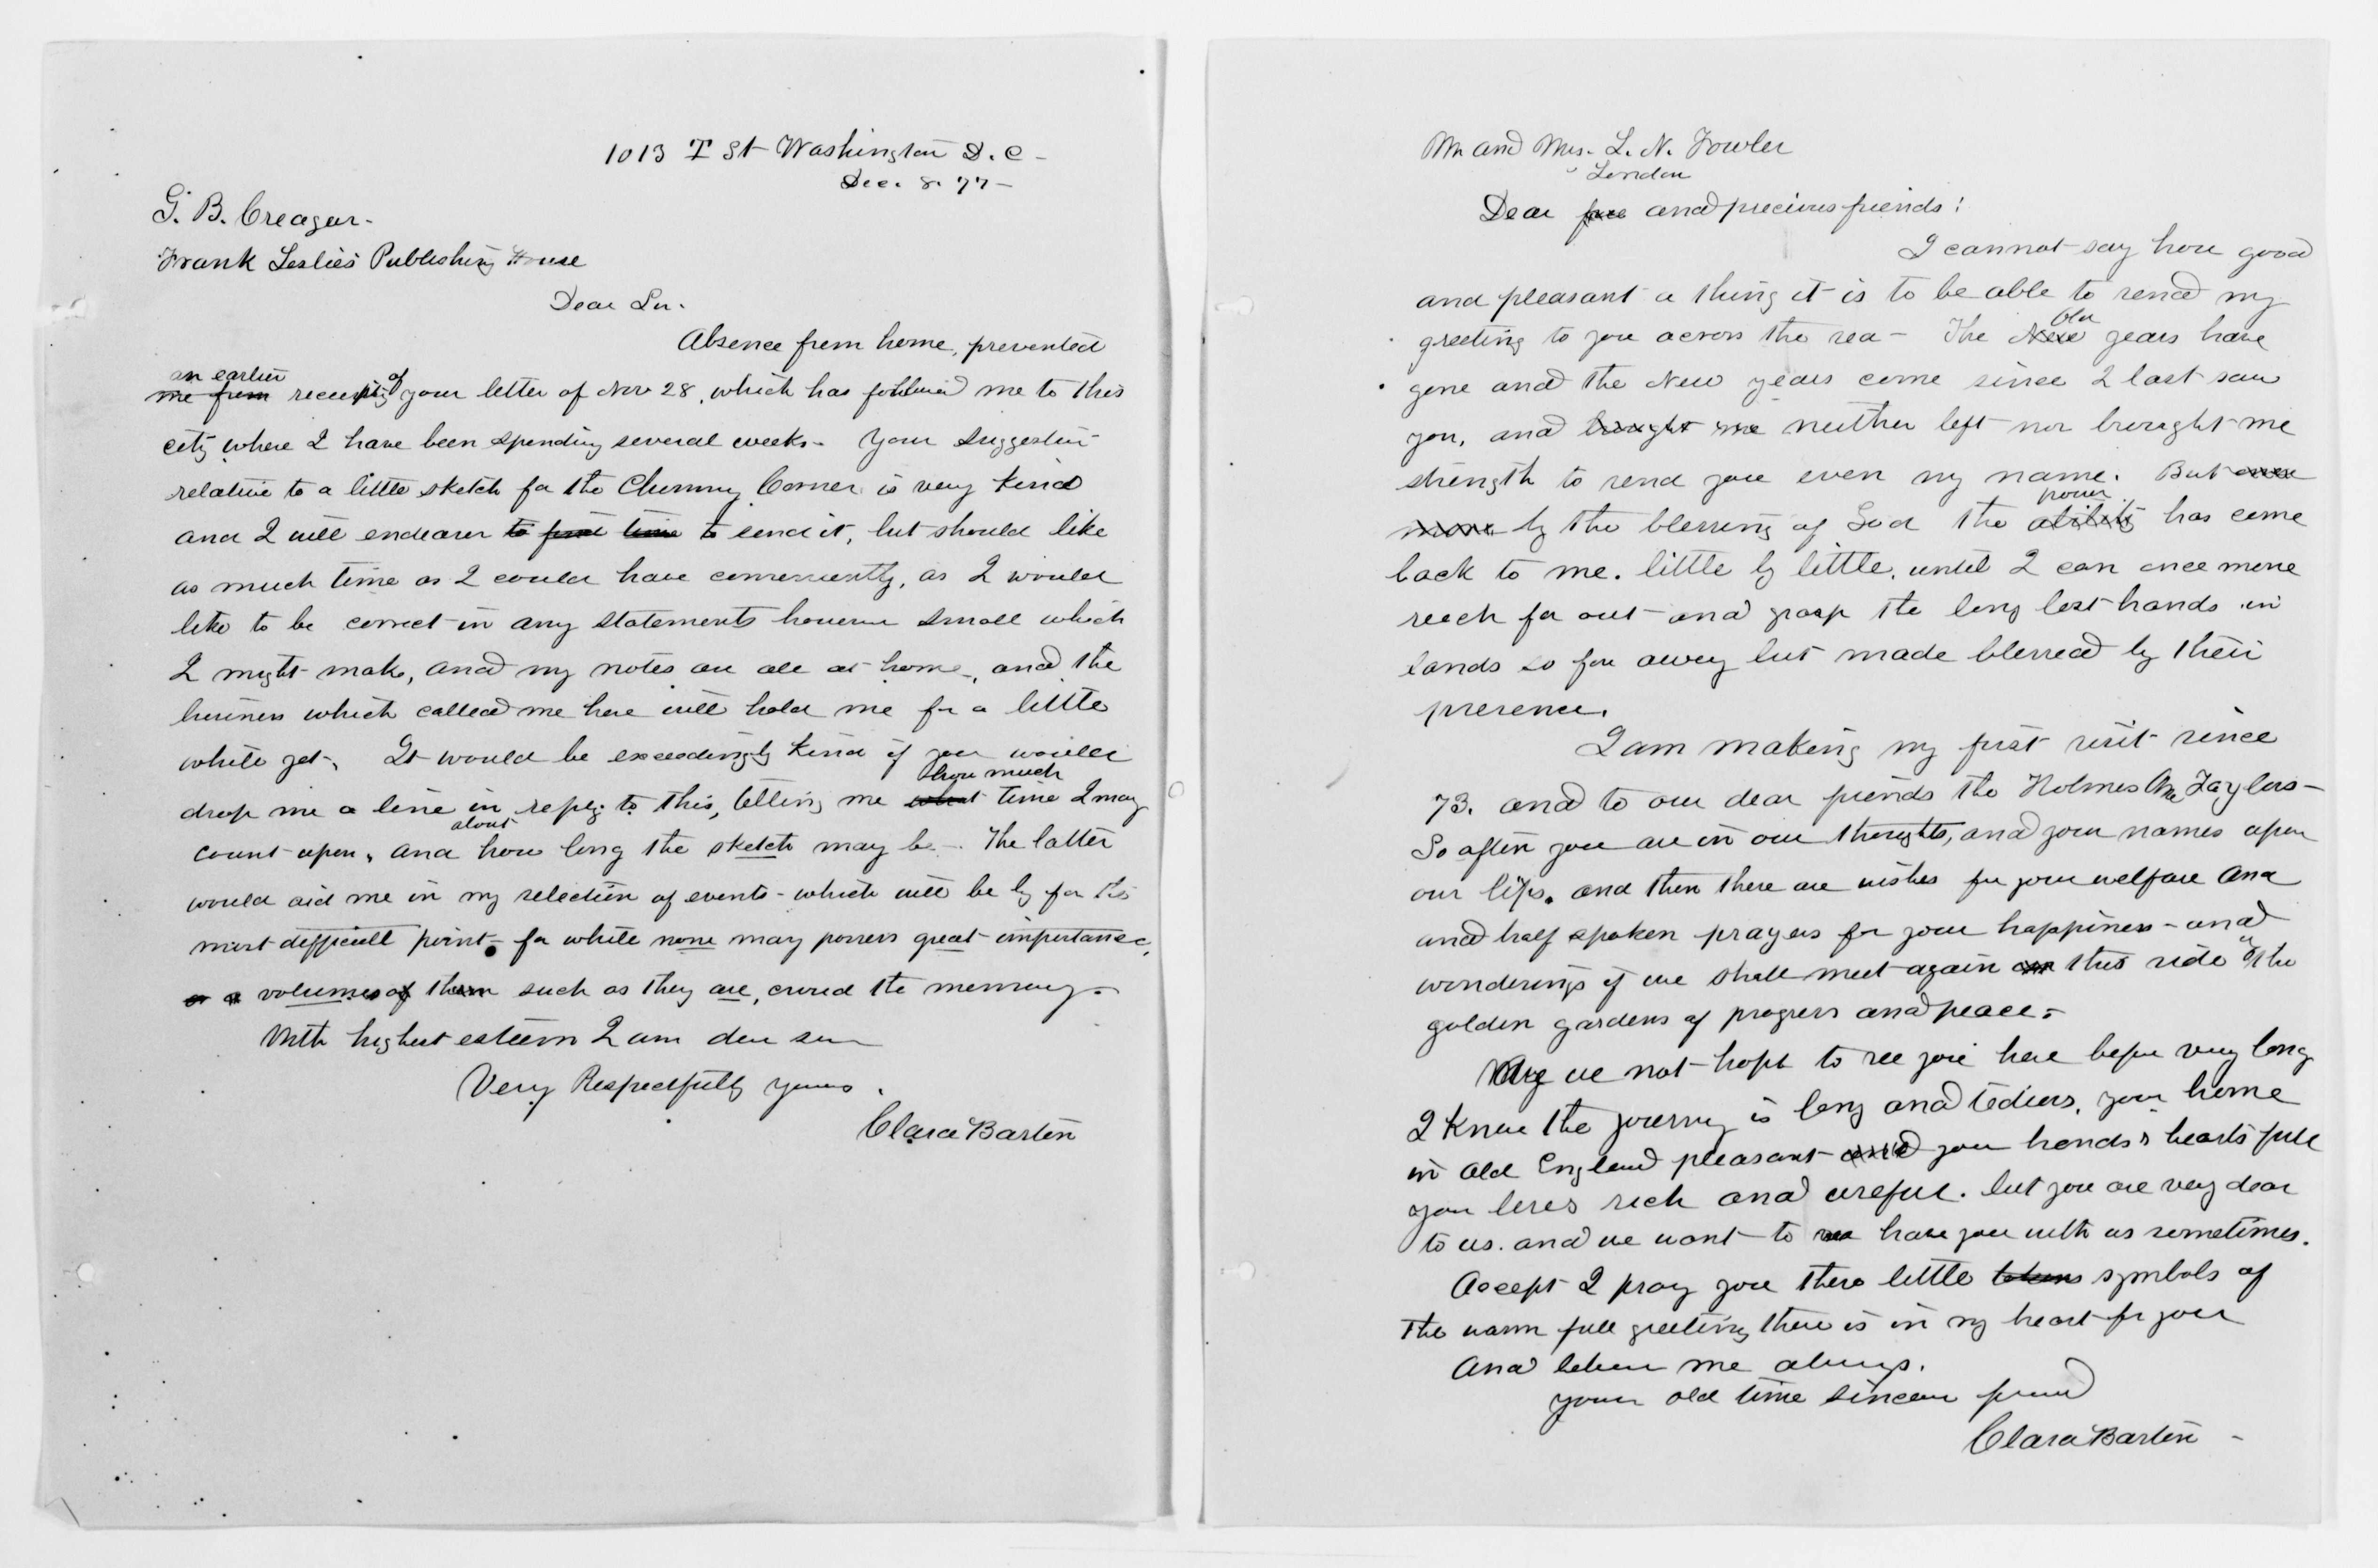 1013 T St Washington D. C -
Dec. 8. 77 -
G. B. Creager -
Frank Leslie's Publishing House
Dear Sir.
Absence from home, prevented
an earlier of
me from receipt your letter of Nov 28, which has followed me to this
city where I have been spending several weeks - Your suggestion
relative to a little sketch for the Chimney Corner is very kind
and I will endeavor to find time to send it, but should like
as much time as I could have conveniently, as I would
like to be correct in any statements however small which
I might make, and my notes are all at home -, and the
business which called me here will hold me for a little
while yet -. It would be exceedingly kind if you would
how much
drop me a line in reply to this, telling me what time I may
about
count upon, and how long the sketch may be -. The latter
would aid me in my selection of events - which will be by far the
most difficult point - for while none may possess great importance,
or a volumes of them such as they are, crowd the memory -
With highest esteem I am dear sir
Very Respectfully yours.
Clara Barton
Mr and Mrs. L. N. Fowler
London
Dear and precious friends:
I cannot say how good
and pleasant a thing it is to be able to send my
old
greeting to you across the sea - The New years have
gone and the New years come since I last saw
you, and brought me neither left nor brought me
strength to send you even my name. But even
power
more by the blessing of God the ability has come
back to me. little by little. until I can once more
reach far out - and grasp the long lost hands in
lands so far away but made blessed by their
presence.
I am making my first visit since
73. and to our dear friends the Holmes and Taylors -
So often you are in our thoughts, and your names upon
our lips. and then there are wishes for your welfare and
and half spoken prayers for your happiness - and
wonderings if we shall meet again on this side of the
golden gardens of progress and peace -
May we not hope to see you here before very long
I know the journey is long and tedious, your home
in old England pleasant and your hands & hearts full
your lives rich and useful. but you are very dear
to us. and we want to see have you with us sometimes.
Accept I pray you these little tokens symbols of
the warm full greeting there is in my heart for you
And believe me always.
your old time sincere friend
Clara Barton -